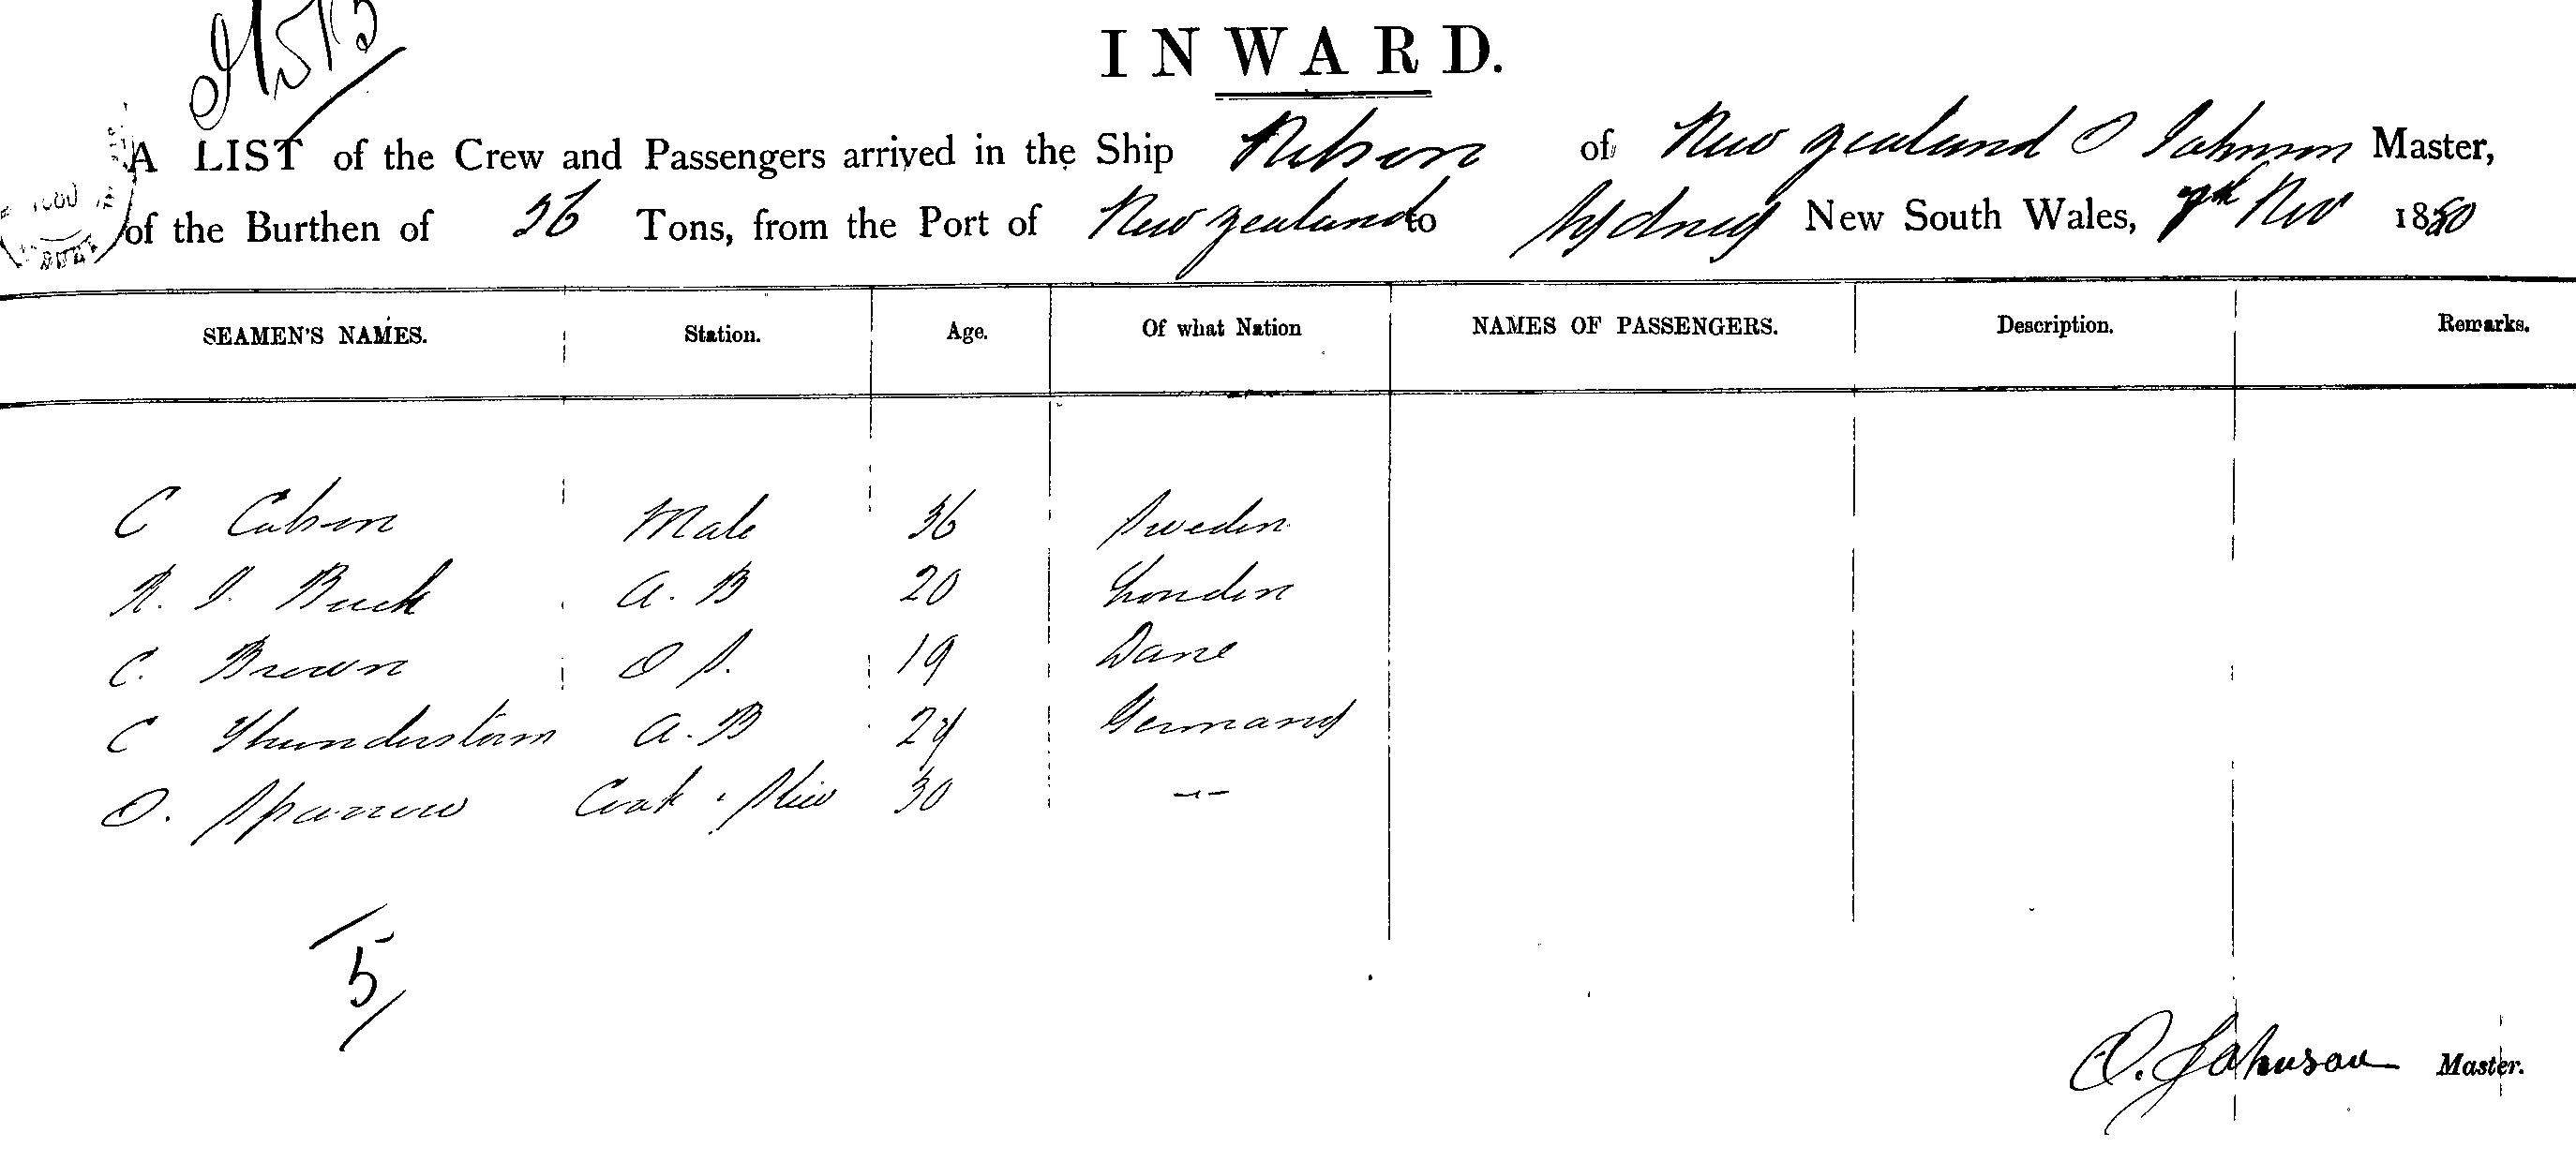 INWARD.
A LIST of the Crew and Passengers arrived in the Ship Nelson of New Zealand O Johnson Master,
of the Burthen of 56 Tons, from the Port of New Zealand to Sydney New South Wales, 7th Nov 1880
SEAMEN'S NAMES. Station. Age. Of what Nation NAMES OF PASSENGERS. Description. Remarks.
C Calson Mate 36 Sweden
R. I. Buck A. B 20 London
C. Brown O S. 19 Dane
C Thunderstorm A. B 24 Germany
O. Sparrow Cook 30 --
5
O. Johnson Master.